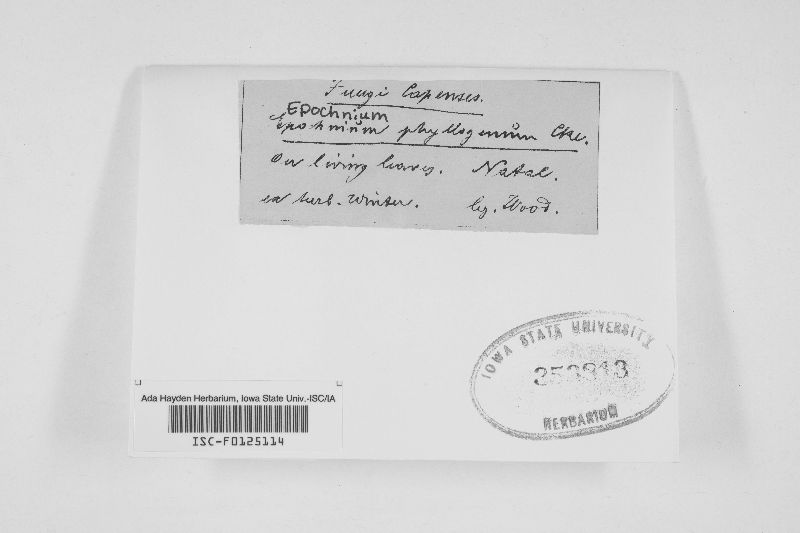 Fungi Capenses.
Epochnium
Epochnium phyllogenum Cke.
On living leaves. Natal.
ex herb. Winter. leg. Wood.
IOWA STATE UNIVERSITY
353313
HERBARIUM
Ada Hayden Herbarium, Iowa State Univ.-ISC/IA
ISC-F0125114